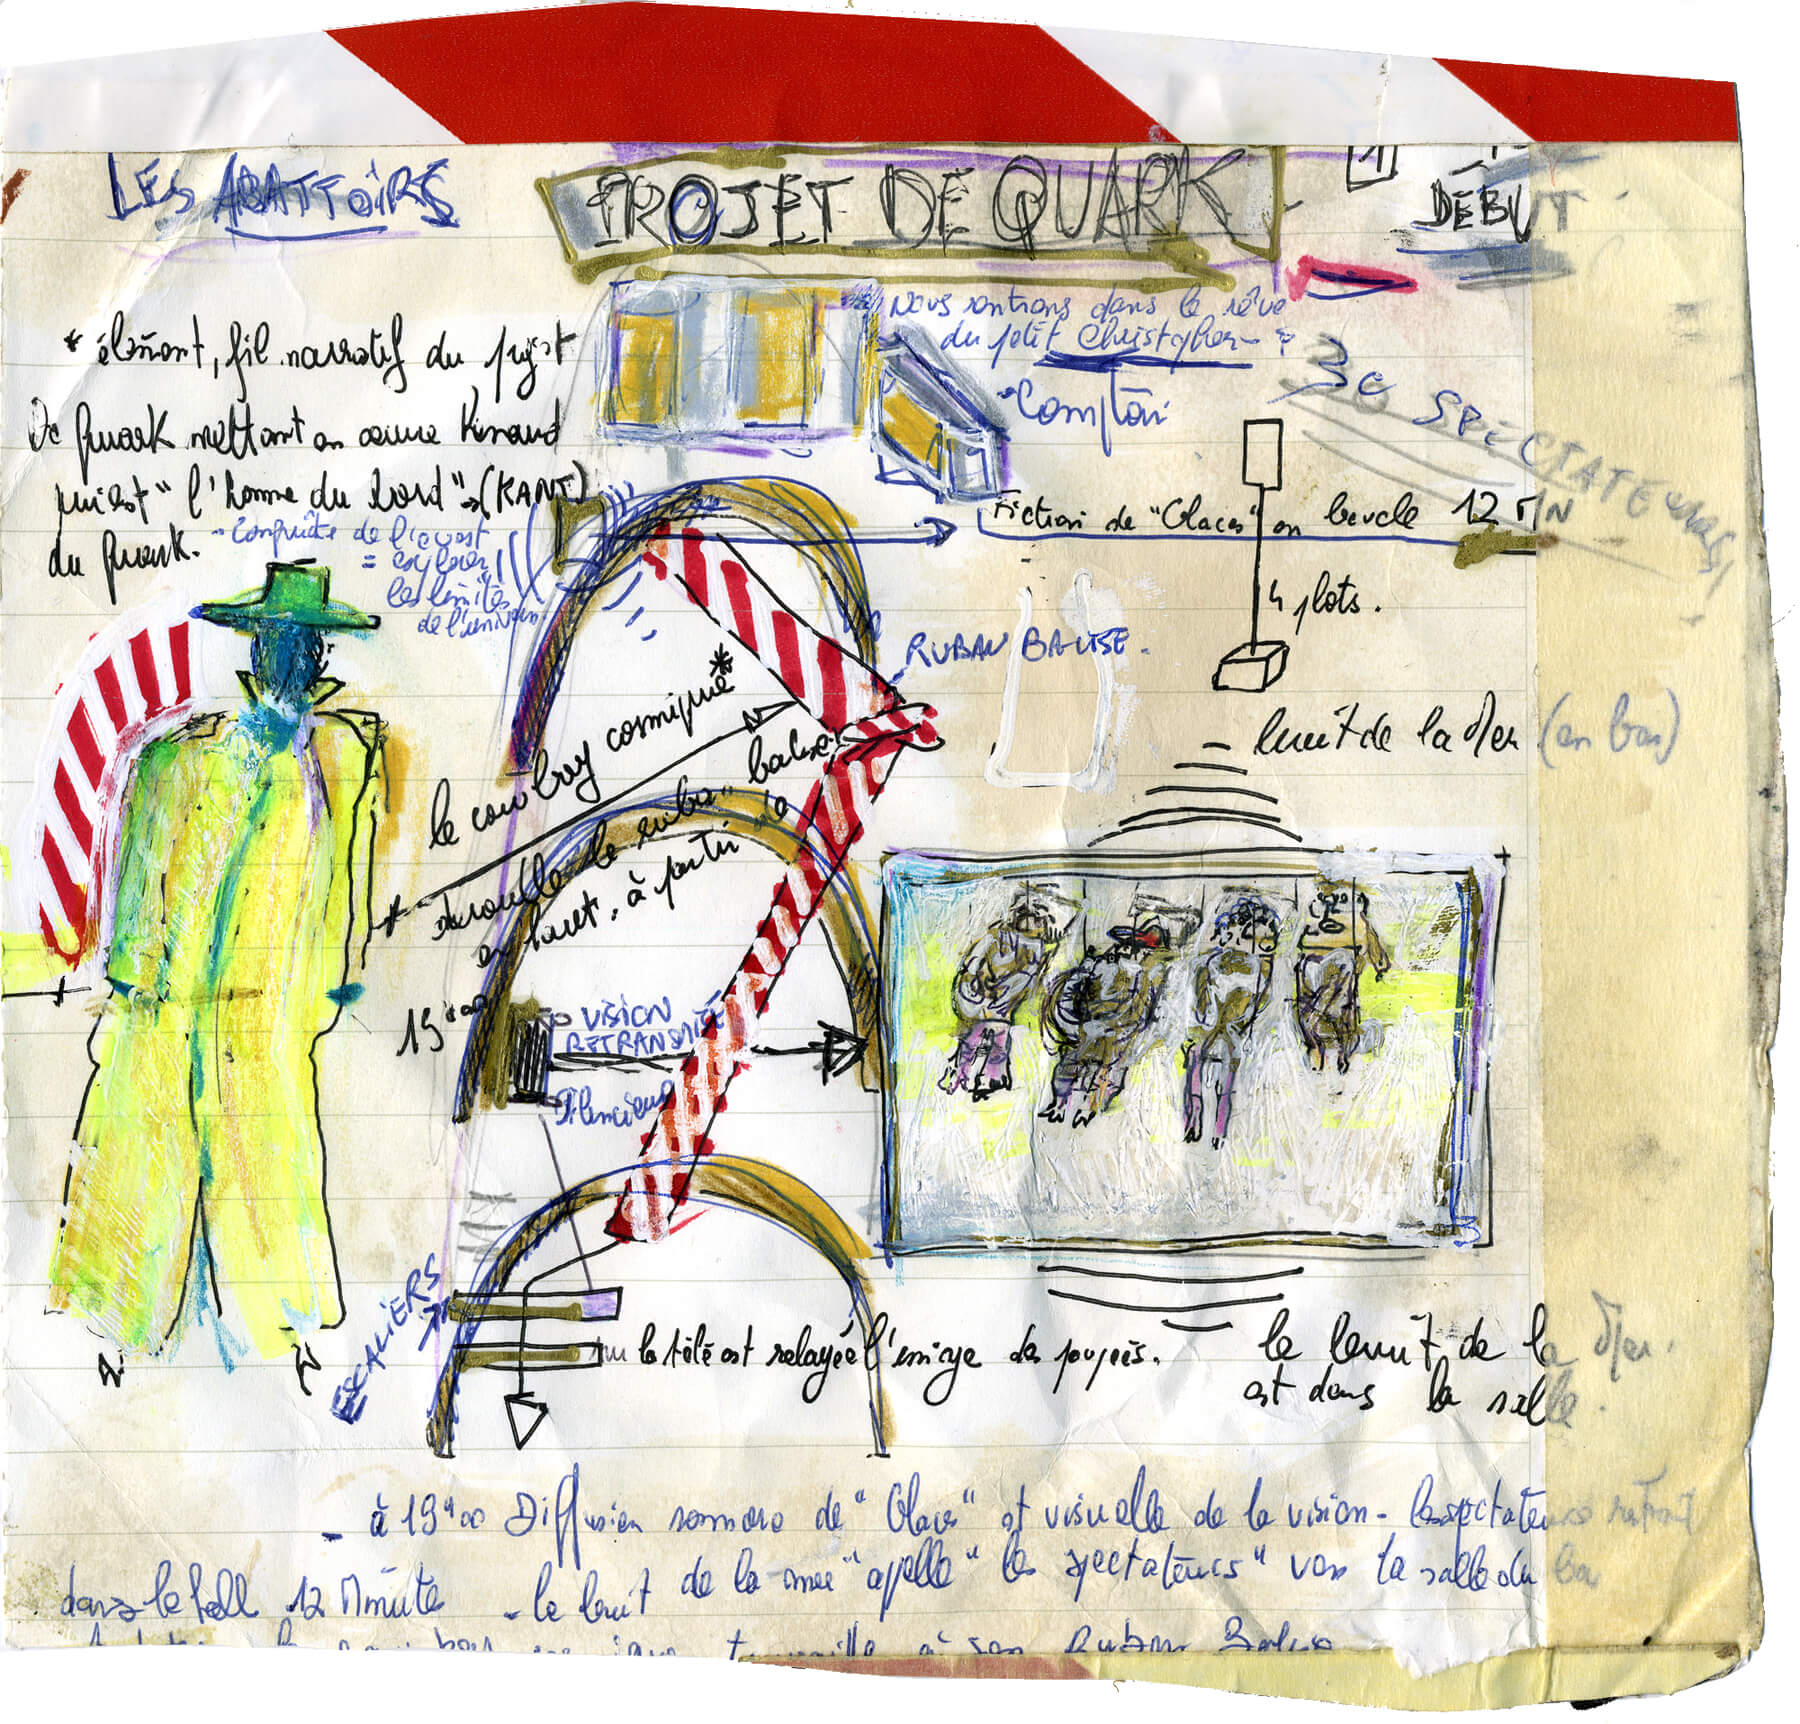 LES ABATTOIRS
PROJET DE QUARK
1
DÉBUT
Nous rentrons dans le rêve
du petit Christopher
Comptoir
30 SPECTATEURS
* élément, fil narratif du projet
De Quark mettant en œuvre
qui est "l'homme du bord" (KANT)
du Quark.
- Conquête de l'ouest
= explorer
les limites
de l'univers
Fiction de "Glaces" en boucle 12 MN
4 plots.
RUBAN BALISE.
le cow boy cosmique *
déroulle le ruban balise
en haut, à partir de
19 h 00
bruit de la Mer (en bas)
VISION
RETRANSMISE
Silencieuse
ESCALIERS
sur la télé est relayée l'image des poupées.
le bruit de la Mer.
est dans la salle.
- à 19h00 Diffusion sonore de "Glaces" et visuelle de la vision - les spectateurs
dans le hall 12 Minute - le bruit de la mer "apelle" les spectateurs" vers la salle du bas
cow boy cosmique travaille à son Ruban Balise